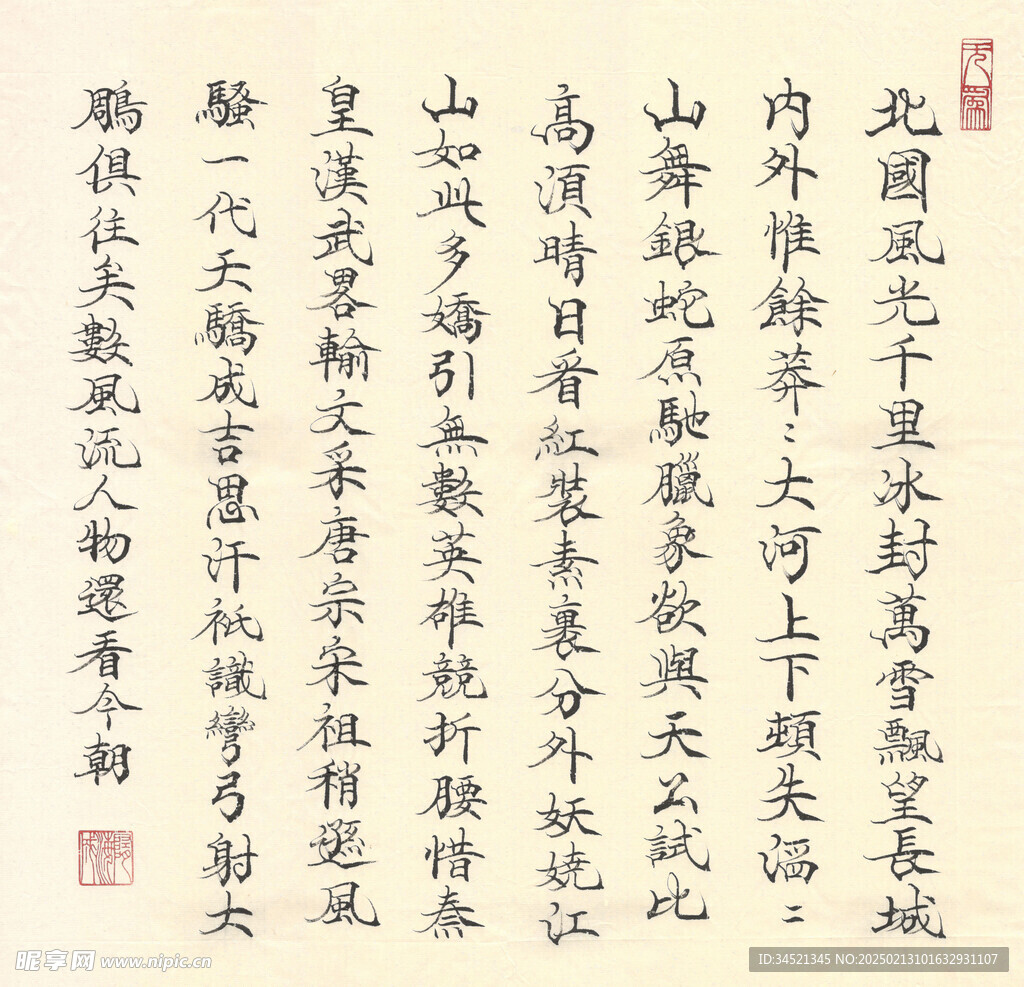 北國風光千里冰封萬雪飄望長城
内外惟餘莽〻大河上下頓失滔〻
山舞銀蛇原馳臘象欲與天公試比
高須晴日看紅裝素裹分外妖嬈江
山如此多嬌引無數英雄競折腰惜秦
皇漢武畧輸文采唐宗宋祖稍遜風
騷一代天驕成吉思汗祇識彎弓射大
鵰俱往矣數風流人物還看今朝
昵享网 www.nipic.cn
ID:34521345 NO:20250213101632931107